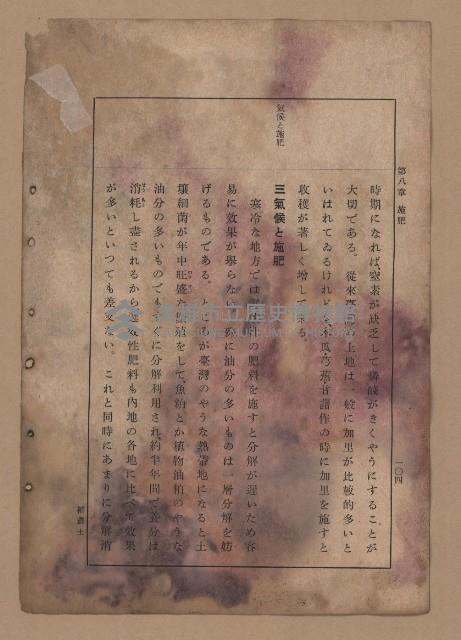 第八章 施肥
一〇四
時期になれば、窒素が缺乏して燐酸がきくやうにすることが
大切である。從來臺灣の土地は一般に加里が比較的多いと
いはれてゐるけれど 瓜、芭蕉、甘藷作の時に加里を施すと
收穫が著しく増して來る。
氣候と施肥
三 氣候と施肥
寒冷な地方では の肥料を施すと分解が遲いため容
易に效果が擧らな 殊に油分の多いものは一層分解を妨
げるものである。と が臺灣のやうな熱帶地になると土
壤細菌が年中旺盛な 殖をして、魚粕とか植物油粕のやうな
油分の多いものでも に分解利用され、約半年間で養分は
消耗し盡されるから 效性肥料も內地の各地に比べて效果
が多いといつても差支ない。これと同時にあまりに分解消
補農土
高雄市立歷史博物館
KAOHSIUNG MUSEUM OF HISTORY